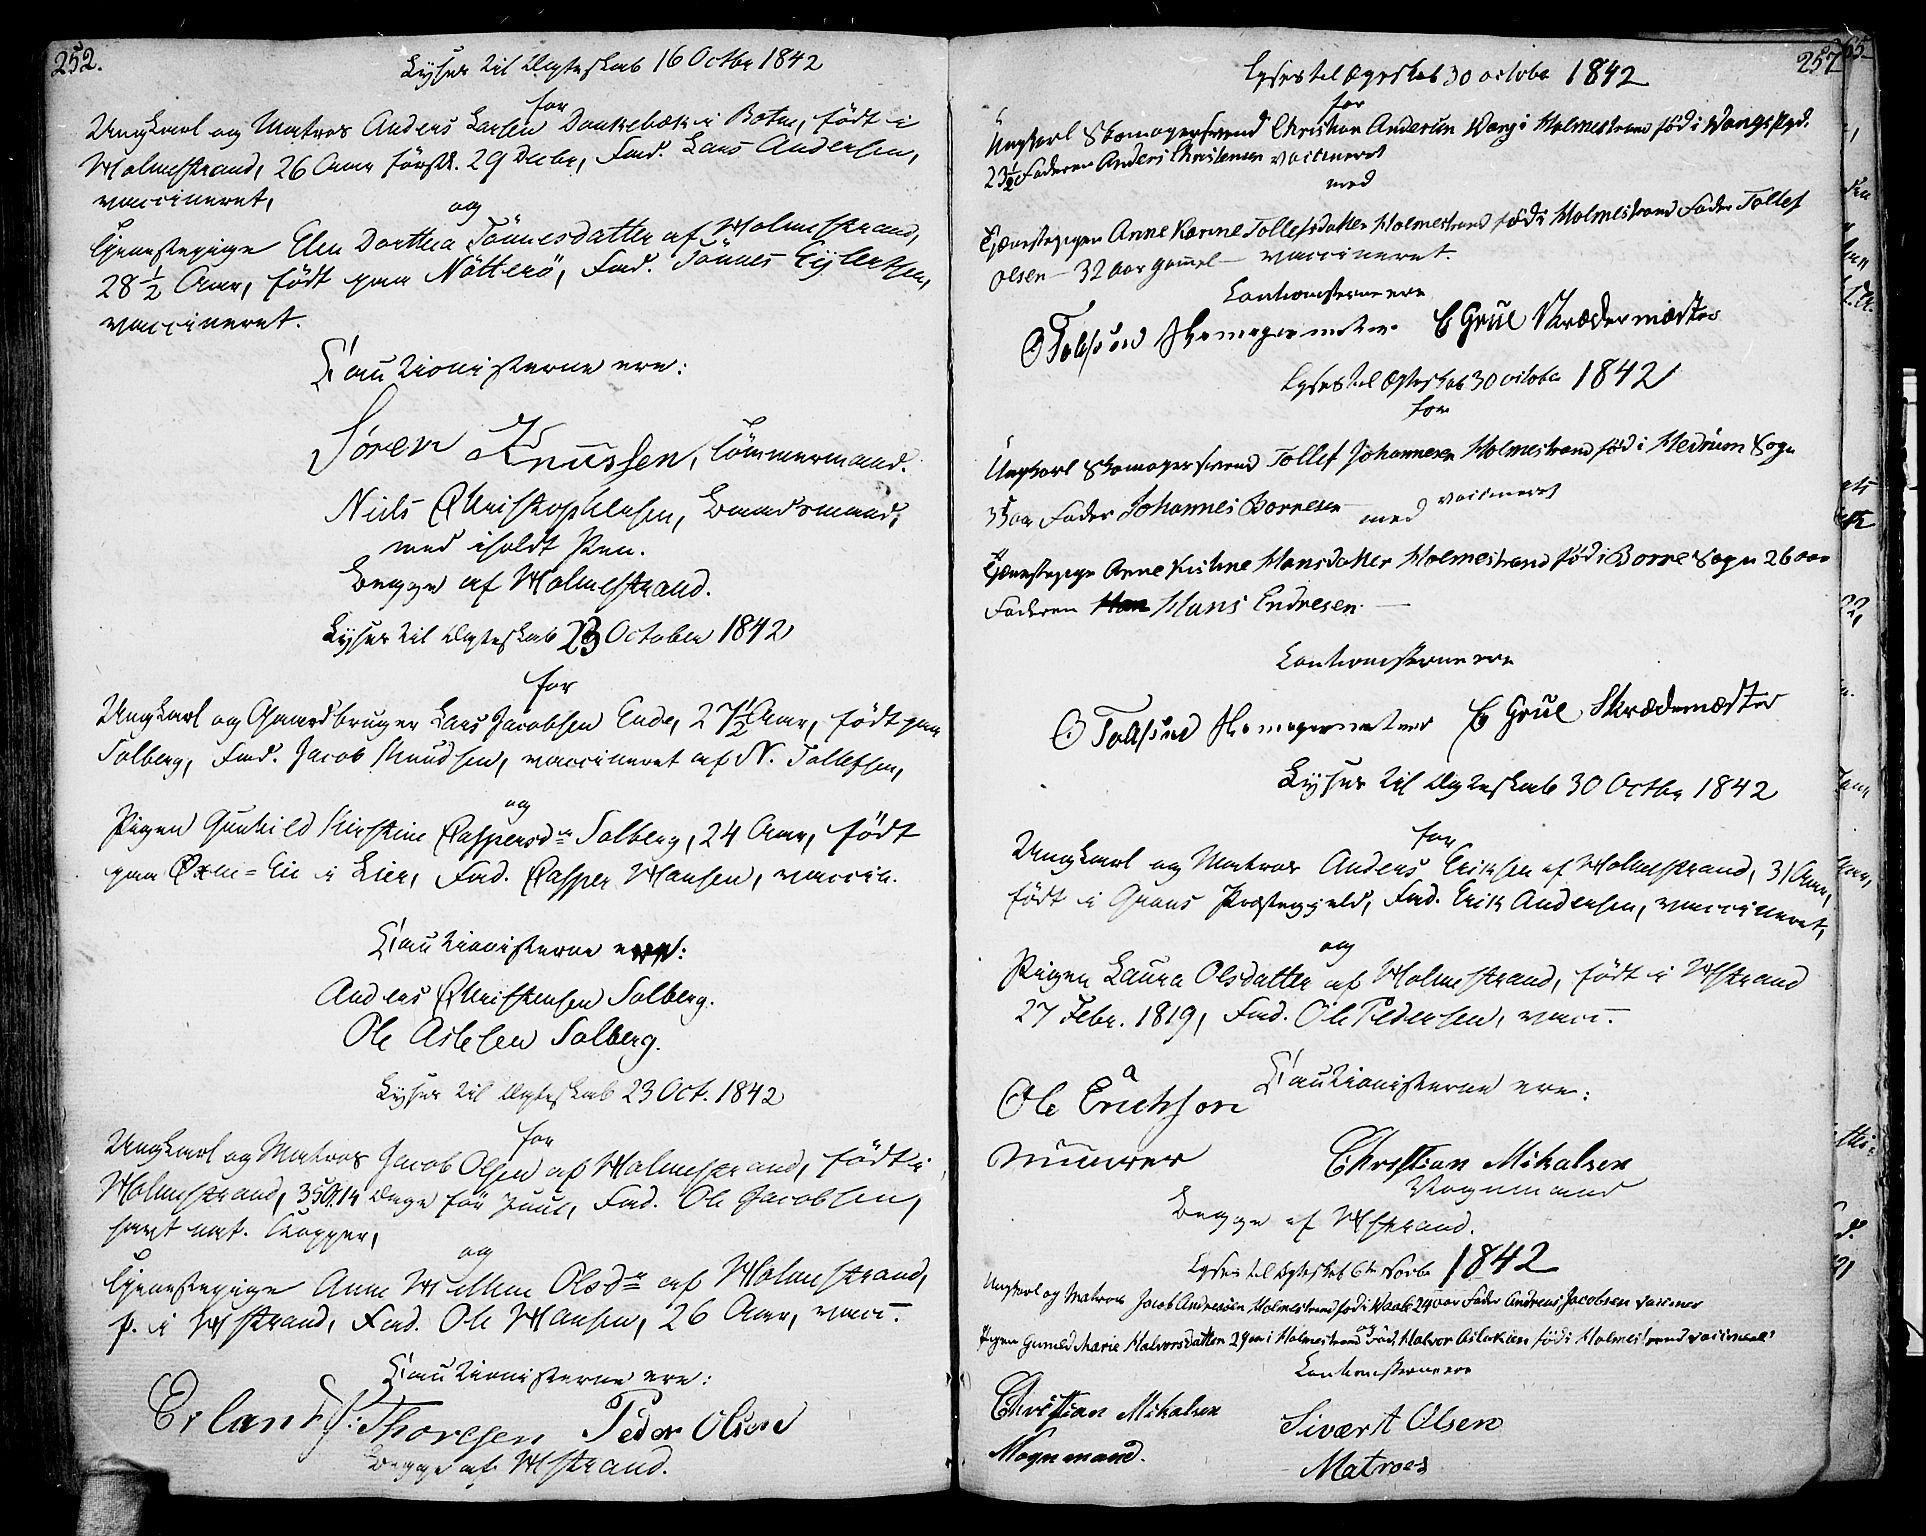 252.
Lyses til Ægteskab 16 Octbr 1842
for
Ungkarl og Matros Anders Larsen Dankebæk i Botne, født i
Holmestrand, 26 Aar förstk. 29 Decbr, Fad. Lars Andersen,
vaccineret,
og
Tjenestepige Elen Dorthea Tönnesdatter af Holmestrand,
28 1/2 Aar, født paa Nötterö, Fad. Tönnes Eylertsen,
vaccineret.
Cautionisterne ere:
Søren Knussen, Tömmermand.
Niels Christophersen,
med iholdt Pen.
Begge af Holmestrand.
Lyses til Ægteskab 23 October 1842
for
Ungkarl og Gaardbruger Lars Jacobsen Ende, 27 1/2 Aar, født paa
Solberg, Fad. Jacob Knudsen, vaccineret af N. Tollefsen,
og
Pigen Gunhild Kirstine Caspersdr Solberg, 24 Aar, født
paa i Lier, Fad. Casper Hansen, vaccin.
Cautionisterne ere:
Anders Christensen Solberg.
Ole Aslesen Solberg.
Lyses til Ægteskab 23 Oct. 1842
for
Ungkarl og Matros Jacob Olsen af Holmestrand, født i
Holmestrand, 35 14 Dage för Juul, Fad. Ole Jacobsen,
havt nat. Kopper,
og
Tjenestepige Anne Olsdr af Holmestrand,
f. i Hstrand, Fad. Ole Hansen, 26 Aar, vacc.
Cautionisterne ere:
Erland Thoresen Peder Olsen
Begge af Hstrand.
257
Lyses til Ægteskab 30 octobr 1842
for
Ungkarl Skomagersvend Christian Andersen Wang i Holmestrand fød i Wangs Pgd.
23 1/2 Faderen Anders Christensen vaccineret
med
Tjenestepigen Anne Karine Tollefsdatter Holmestrand fød i Holmestrand Fader Tollef
Olsen - 32 aar gammel - vaccineret.
Cautionisterne ere
O Skomagermester E Grul Skrædermæster
Lyses til Ægteskab 30 octobr 1842
for
Ungkarl Skomagersvend Tollef Johannesen Holmestrand fød i Hedrum Sogn
35 aar Fader Johannes Bornesen med vaccineret
Tjenestepige Anne Kistine Hansdatter Holmestrand fød i Borre Sogn 26 aar
Faderen Hans Endresen -
Cautionisterne ere
O Skomagermester E Grul Skrædemæster
Lyses til Ægteskab 30 Octbr 1842
for
Ungkarl og Matros Anders Eriksen af Holmestrand, 31 Aar,
født i Grans Præstegjeld, Fad. Erik Andersen, vaccineret,
og
Pigen Laura Olsdatter af Holmestrand, født i Hstrand
27 Febr. 1819, Fad. Ole Pedersen, vacc.
Cautionisterne ere:
Ole Erichson
muurer
Christian Mikalsen
Vognmand
Begge af Hstrand.
Lyses til Ægteskab 6te Novbr 1842
Ungkarl og Matros Jacob Andresen Holmestrand fød i 24 aar Fader Andreas Jacobsen vacciner
og
Pigen Gunild Marie Halvorsdatter 29 aar i Holmestrand Fad. Halvor Aslaksen fød i Holmestrand vaccineret
Cautionisterne ere
Christian Mikalsen
Vognmand.
Sivært Olsen
Matroes